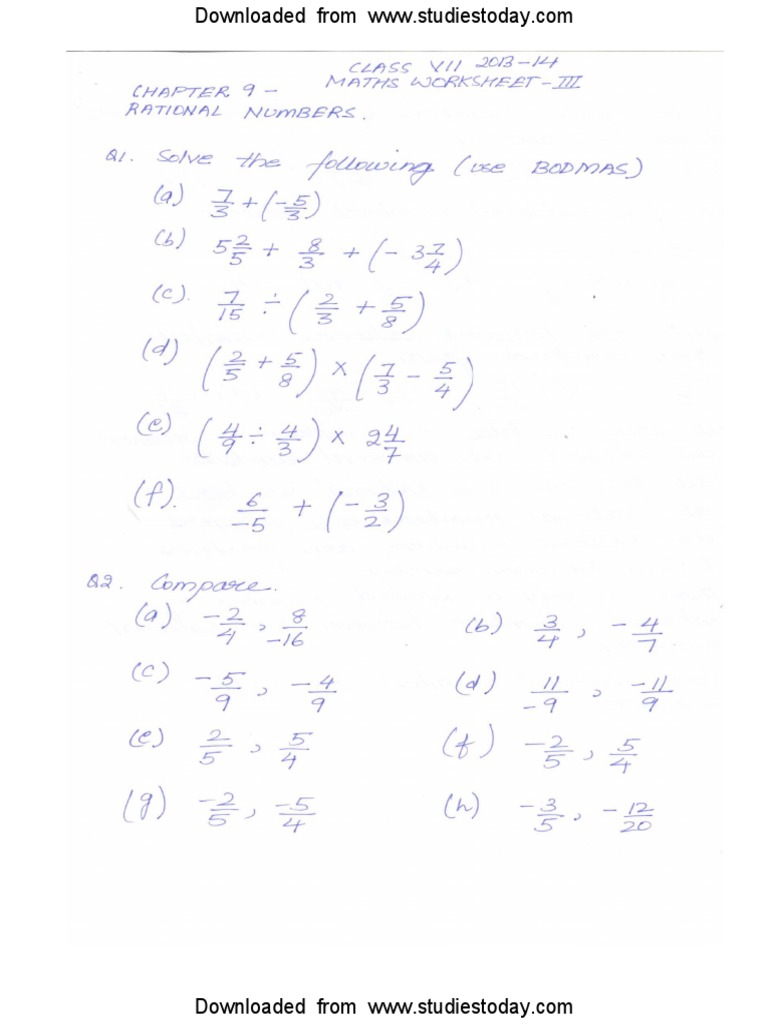 Downloaded from www.studiestoday.com
CLASS VII 2013-14
CHAPTER 9 - MATHS WORKSHEET-III
RATIONAL NUMBERS.
Q1. Solve the following (use BODMAS)
(a) 7/3 + (-5/3)
(b) 5 2/5 + 8/3 + (- 3 7/4)
(c). 7/15 ÷ (2/3 + 5/8)
(d) (2/5 + 5/8) × (7/3 - 5/4)
(e) (4/9 ÷ 4/3) × 2 4/7
(f). 6/-5 + (-3/2)
Q2. Compare.
(a) -2/4, 8/-16 (b) 3/4, -4/7
(c) -5/9, -4/9 (d) 11/-9, -11/9
(e) 2/5, 5/4 (f) -2/5, 5/4
(g) -2/5, -5/4 (h) -3/5, -12/20
Downloaded from www.studiestoday.com